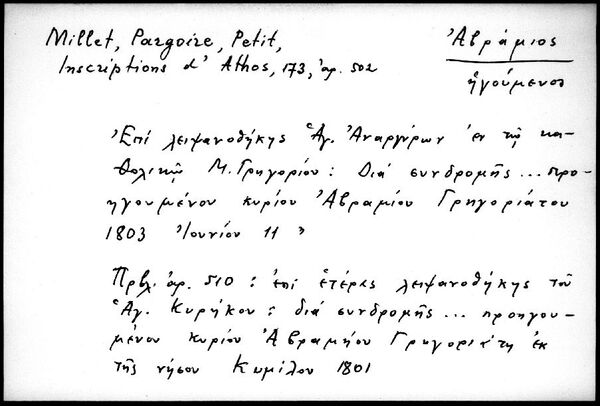 Millet, Pargoire, Petit,
Inscriptions d' Athos, 173, ἀρ. 502
Ἀβράμιος
ἡγούμενος
Ἐπί λειψανοθήκης Ἁγ. Ἀναργύρων ἐν τῷ κα-
θολικῷ Μ. Γρηγορίου: Διά συνδρομῆς ... προ-
ηγουμένου κυρίου Ἀβραμίου Γρηγοριάτου
1803 Ἰουνίου 11 »
Πρβλ. ἀρ. 510: ἐπί ἑτέρας λειψανοθήκης τοῦ
Ἁγ. Κυρήκου: διά συνδρομῆς ... προηγου-
μένου κυρίου Ἀβραμήου Γρηγοριάτη ἐκ
τῆς νήσου Κυμίλου 1801